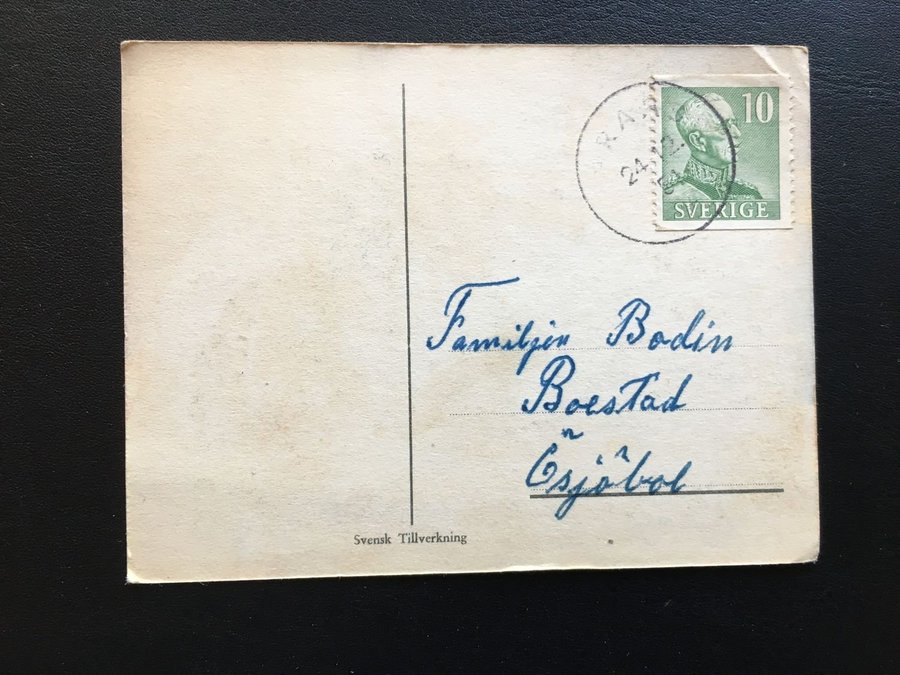 10
24 12
SVERIGE
Familjen Bodin
Boestad
Ösjöbol
Svensk Tillverkning